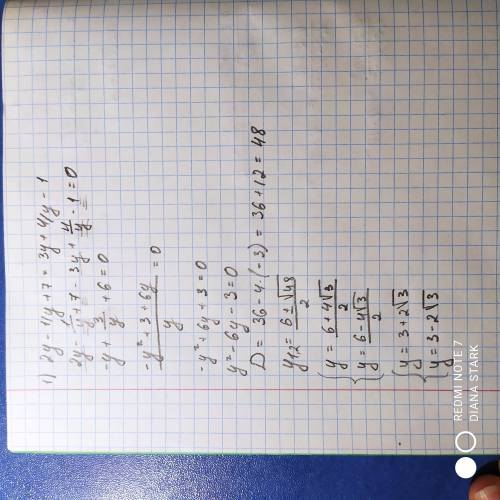 1) 2y - 1/y + 7 = 3y + 4/y - 1
2y - 1/y + 7 - 3y + 4/y - 1 = 0
-y + 3/y + 6 = 0
(-y² + 3 + 6y)/y = 0
-y² + 6y + 3 = 0
y² - 6y - 3 = 0
D = 36 - 4·(-3) = 36 + 12 = 48
y1,2 = (6 ± √48)/2
{ y = (6 + 4√3)/2
{ y = (6 - 4√3)/2
{ y = 3 + 2√3
{ y = 3 - 2√3
REDMI NOTE 7
DIANA STARK